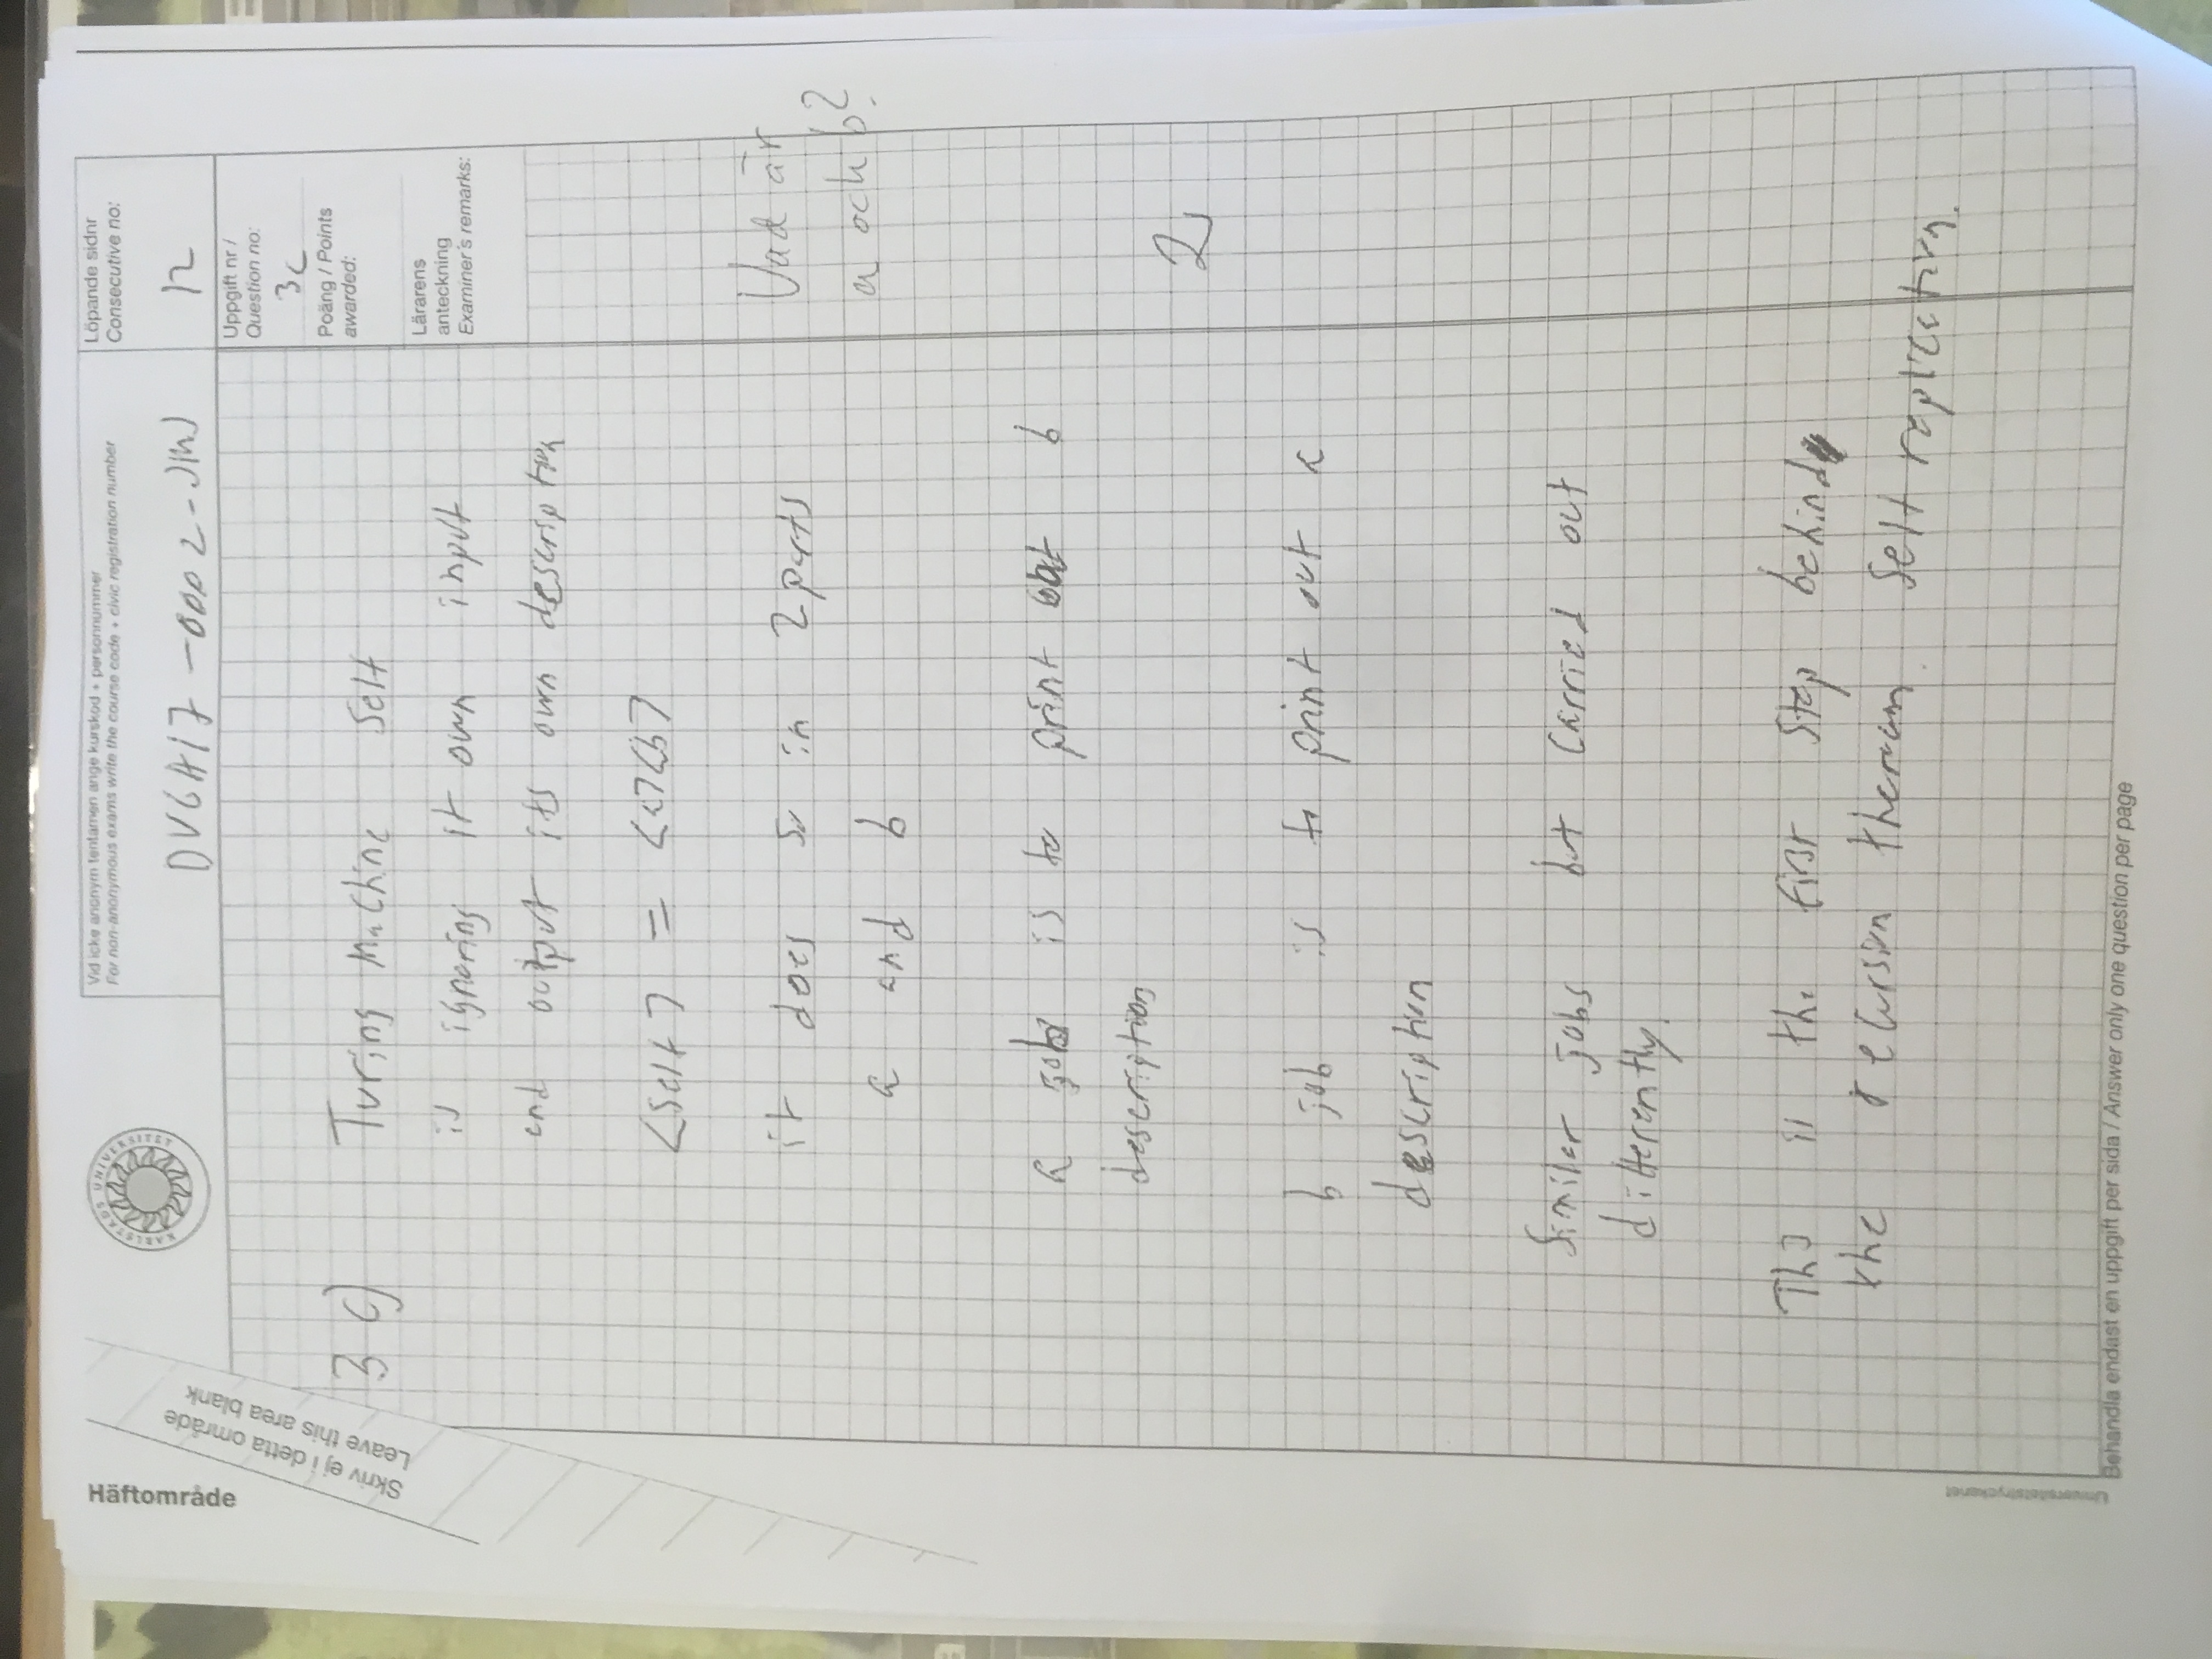 Häftområde
Skriv ej i detta område
Leave this area blank
KARLSTADS UNIVERSITET
Vid icke anonym tentamen ange kurskod + personnummer
For non-anonymous exams write the course code + civic registration number
DVGA17 -0002-
Löpande sidnr
Consecutive no:
12
Uppgift nr /
Question no:
3c
Poäng / Points
awarded:
Lärarens
anteckning
Examiner's remarks:
3 c) Turing Machine Self
is ignoring it own input
and output its own description
<Self> = <a><b>
it does so in 2 parts
a and b
Vad är
a och b?
a job is to print out b
description
2
b job is to print out a
description
Similar jobs but carried out
differently.
is the first step behind
the recursion theream. Self replication.
Universitetstryckeriet
Behandla endast en uppgift per sida / Answer only one question per page